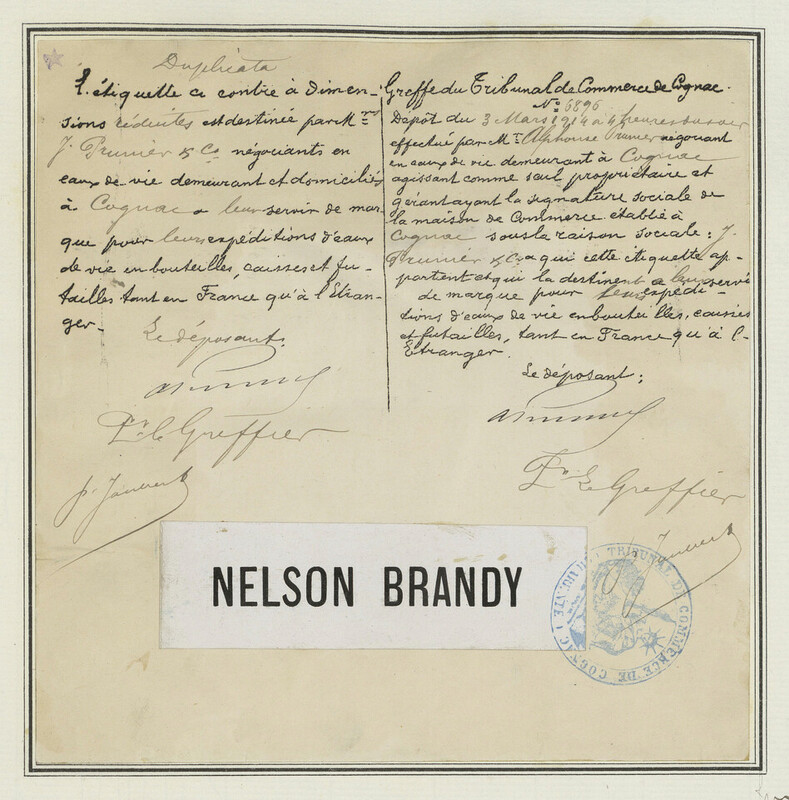 Duplicata
L'étiquette ci contre à dimen-
sions réduites est destinée par Mrs
J. Prunier & Co négociants en
eaux de vie demeurant et domiciliés
à Cognac a leur servir de mar-
que pour leurs expéditions d'eaux
de vie en bouteilles, caisses et fu-
tailles tant en France qu'à l'Etran-
ger.
Le déposant.
Pr Le Greffier
Greffe du Tribunal de Commerce de Cognac.
No 6896
Dépot du 3 Mars 1914 à 4 heures du soir
effectué par Mr Alphonse Prunier négociant
en eaux de vie demeurant à Cognac
agissant comme seul propriétaire et
gérant ayant la signature sociale de
la maison de Commerce établie à
Cognac sous la raison sociale: J.
Prunier & Co a qui cette étiquette ap-
partient et qui la destinent a leur servir
de marque pour leurs expédi-
tions d'eaux de vie en bouteilles, caisses
et futailles, tant en France qu'à l'
Etranger.
Le déposant:
Pr Le Greffier
NELSON BRANDY
TRIBUNAL DE COMMERCE DE COGNAC (CHARENTE)